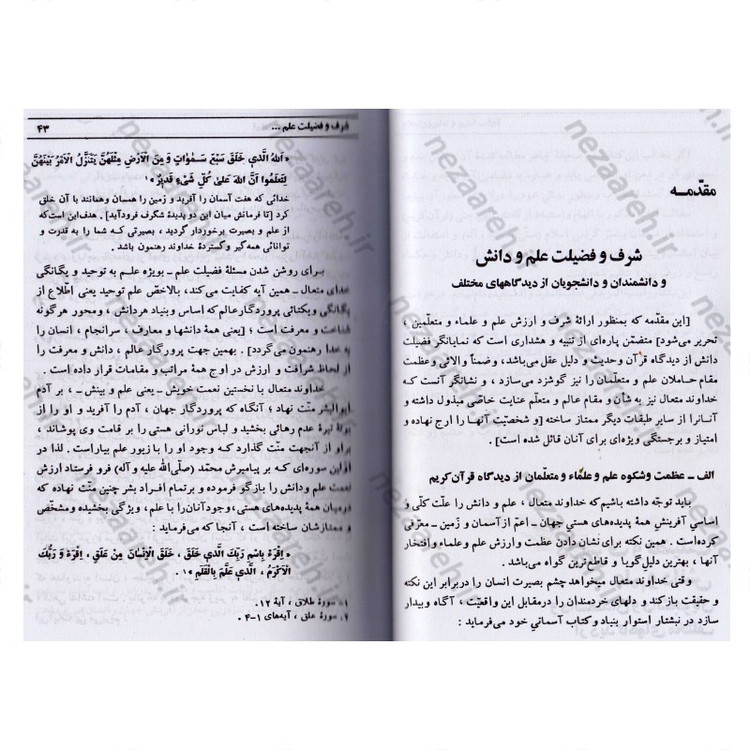 مقدّمــه
شرف و فضیلت علم و دانش
و دانشمندان و دانشجویان از دیدگاههای مختلف
[این مقدّمه که بمنظور ارائهٔ شرف و ارزش علم و علماء و متعلّمین،
تحریر می‌شود] متضمّن پاره‌ای از تنبیه و هشداری است که نمایانگر فضیلت
دانش از دیدگاه قرآن و حدیث و دلیل عقل می‌باشد، و ضمناً والائی و عظمت
مقام حاملان علم و متعلّمان را نیز گوشزد می‌سازد، و نشانگر آنست کـه
خداوند متعال نیز به شأن و مقام عالم و متعلّم عنایت خاصّی مبذول داشته و
آنانرا از سایر طبقات دیگر ممتاز ساخته [و شخصیّت آنها را ارج نهاده و
امتیاز و برجستگی ویژه‌ای برای آنان قائل شده است].
الف ــ عظمت و شکوه علم و علماء و متعلّمان از دیدگاه قرآن کریم
باید توجّه داشته باشیم که خداوند متعال، علم و دانش را علّت کلّی و
اساسی آفرینش همهٔ پدیده‌های هستی جهان ــ اعمّ از آسمان و زمین ــ معرّفی
کرده‌است. همین نکته برای نشان دادن عظمت و ارزش علم و علماء و افتخار
آنها، بهترین دلیل گویا و قاطع‌ترین گواه می‌باشد.
وقتی خداوند متعال میخواهد چشم بصیرت انسان را در برابر این نکته
و حقیقت باز کند و دلهای خردمندان را در مقابل این واقعیّت، آگاه و بیدار
سازد در نبشتار استوار بنیاد و کتاب آسمانی خود می‌فرماید:
شرف و فضیلت علم ... ۴۳
«اَللهُ الَّذي خَلَقَ سَبْعَ سَمٰوٰاتٍ وَ مِنَ الْاَرْضِ مِثْلَهُنَّ یَتَنَزَّلُ الْاَمْرُ بَیْنَهُنَّ
لِتَعْلَمُوا اَنَّ اللهَ عَلیٰ کُلِّ شَیْءٍ قَدیرٌ»۱
خدائی که هفت آسمان را آفرید و زمین را همسان و همانند با آن خلق
کرد [تا فرمانش میان این دو پدیدهٔ شگرف فرودآید]. هدف این است که
از علم و بصیرت برخوردار گردید، بصیرتی کـه شما را به قدرت و
توانائی همه‌گیر و گستردهٔ خداوند رهنمون باشد.
برای روشن شدن مسئلهٔ فضیلت علم ــ بویژه علـم به توحید و یگانگی
خدای متعال ــ همین آیه کفایت می‌کند، بالاخصّ علم توحید یعنی اطّلاع از
یگانگی و یکتائی پروردگار عالم که اساس و بنیاد هر دانش، و محور هر گونه
شناخت و معرفت است؛ [یعنی همهٔ دانشها و معارف، سرانجام، انسان را
به خدا رهنمون می‌گردد]. بهمین جهت پروردگار عالم، دانش و معرفت را
از لحاظ شرافت و ارزش در اوج همهٔ مراتب و مقامات قرار داده است.
خداوند متعال با نخستین نعمت خویش ــ یعنی علم و بینش ــ، بر آدم
ابوالبشر منّت نهاد، آنگاه که پروردگار جهان، آدم را آفرید و او را از
عدم رهائی بخشید و لباس نورانی هستی را بر قامت وی پوشاند،
بر او از آنجهت منّت گذارد کـه وجود او را با زیور علم بیاراست. لذا در
اوّلین سوره‌ای کـه بر پیامبرش محمّد (صلّی‌الله علیه و آله) فرو فرستاد ارزش
نعمت علم و دانش را بازگو فرموده و برتمام افراد بشر چنین منّت نهاده که
همهٔ پدیده‌های هستی، وجود آنان را با علم، ویژگی بخشیده و مشخّص
و ممتازشان ساخته است، آنجا که می‌فرماید:
«اِقْرَءْ بِاسْمِ رَبِّكَ الَّذي خَلَقَ، خَلَقَ الْاِنْسٰانَ مِنْ عَلَقٍ، اِقْرَءْ وَ رَبُّكَ
الْاَکْرَمُ، الَّذي عَلَّمَ بِالْقَلَمِ»۲.
۱. سورهٔ طلاق، آیهٔ ۱۲.
۲. سورهٔ علق، آیه‌های ۱-۴.
nezaareh.ir